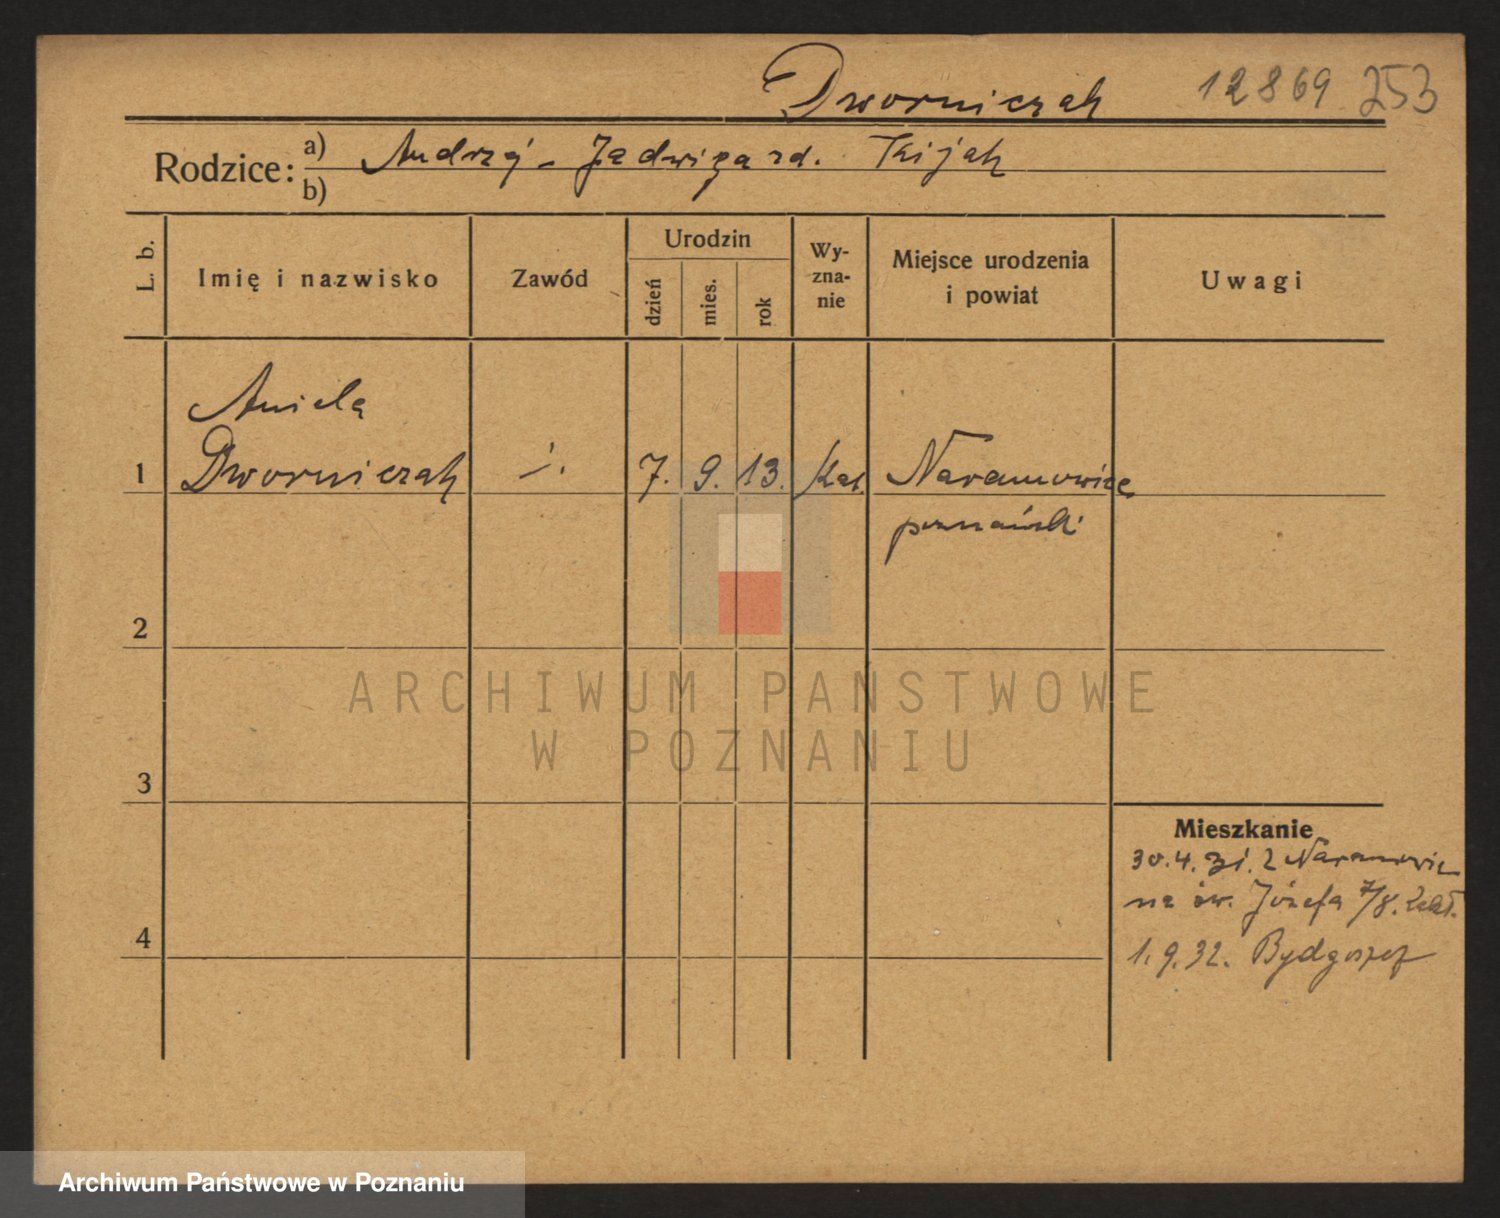 Dworniczak 12869 253
Rodzice: a) Andrzej - Jadwiga zd. Kijak
b)
L. b. Imię i nazwisko Zawód Urodzin dzień mies. rok Wy-zna-nie Miejsce urodzenia i powiat Uwagi
Aniela
1 Dworniczak ./. 7. 9. 13. Kat. Naramowice
poznański
2
ARCHIWUM PAŃSTWOWE
W POZNANIU
3
Mieszkanie
30.4.31. z Naramowic
na św. Józefa 7/8.
4
1.9.32. Bydgoszcz
Archiwum Państwowe w Poznaniu